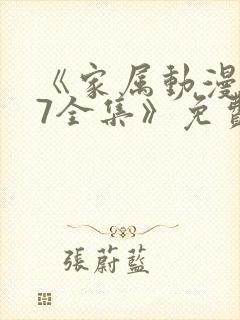 《家属動漫
7全集》免費
張蔚藍